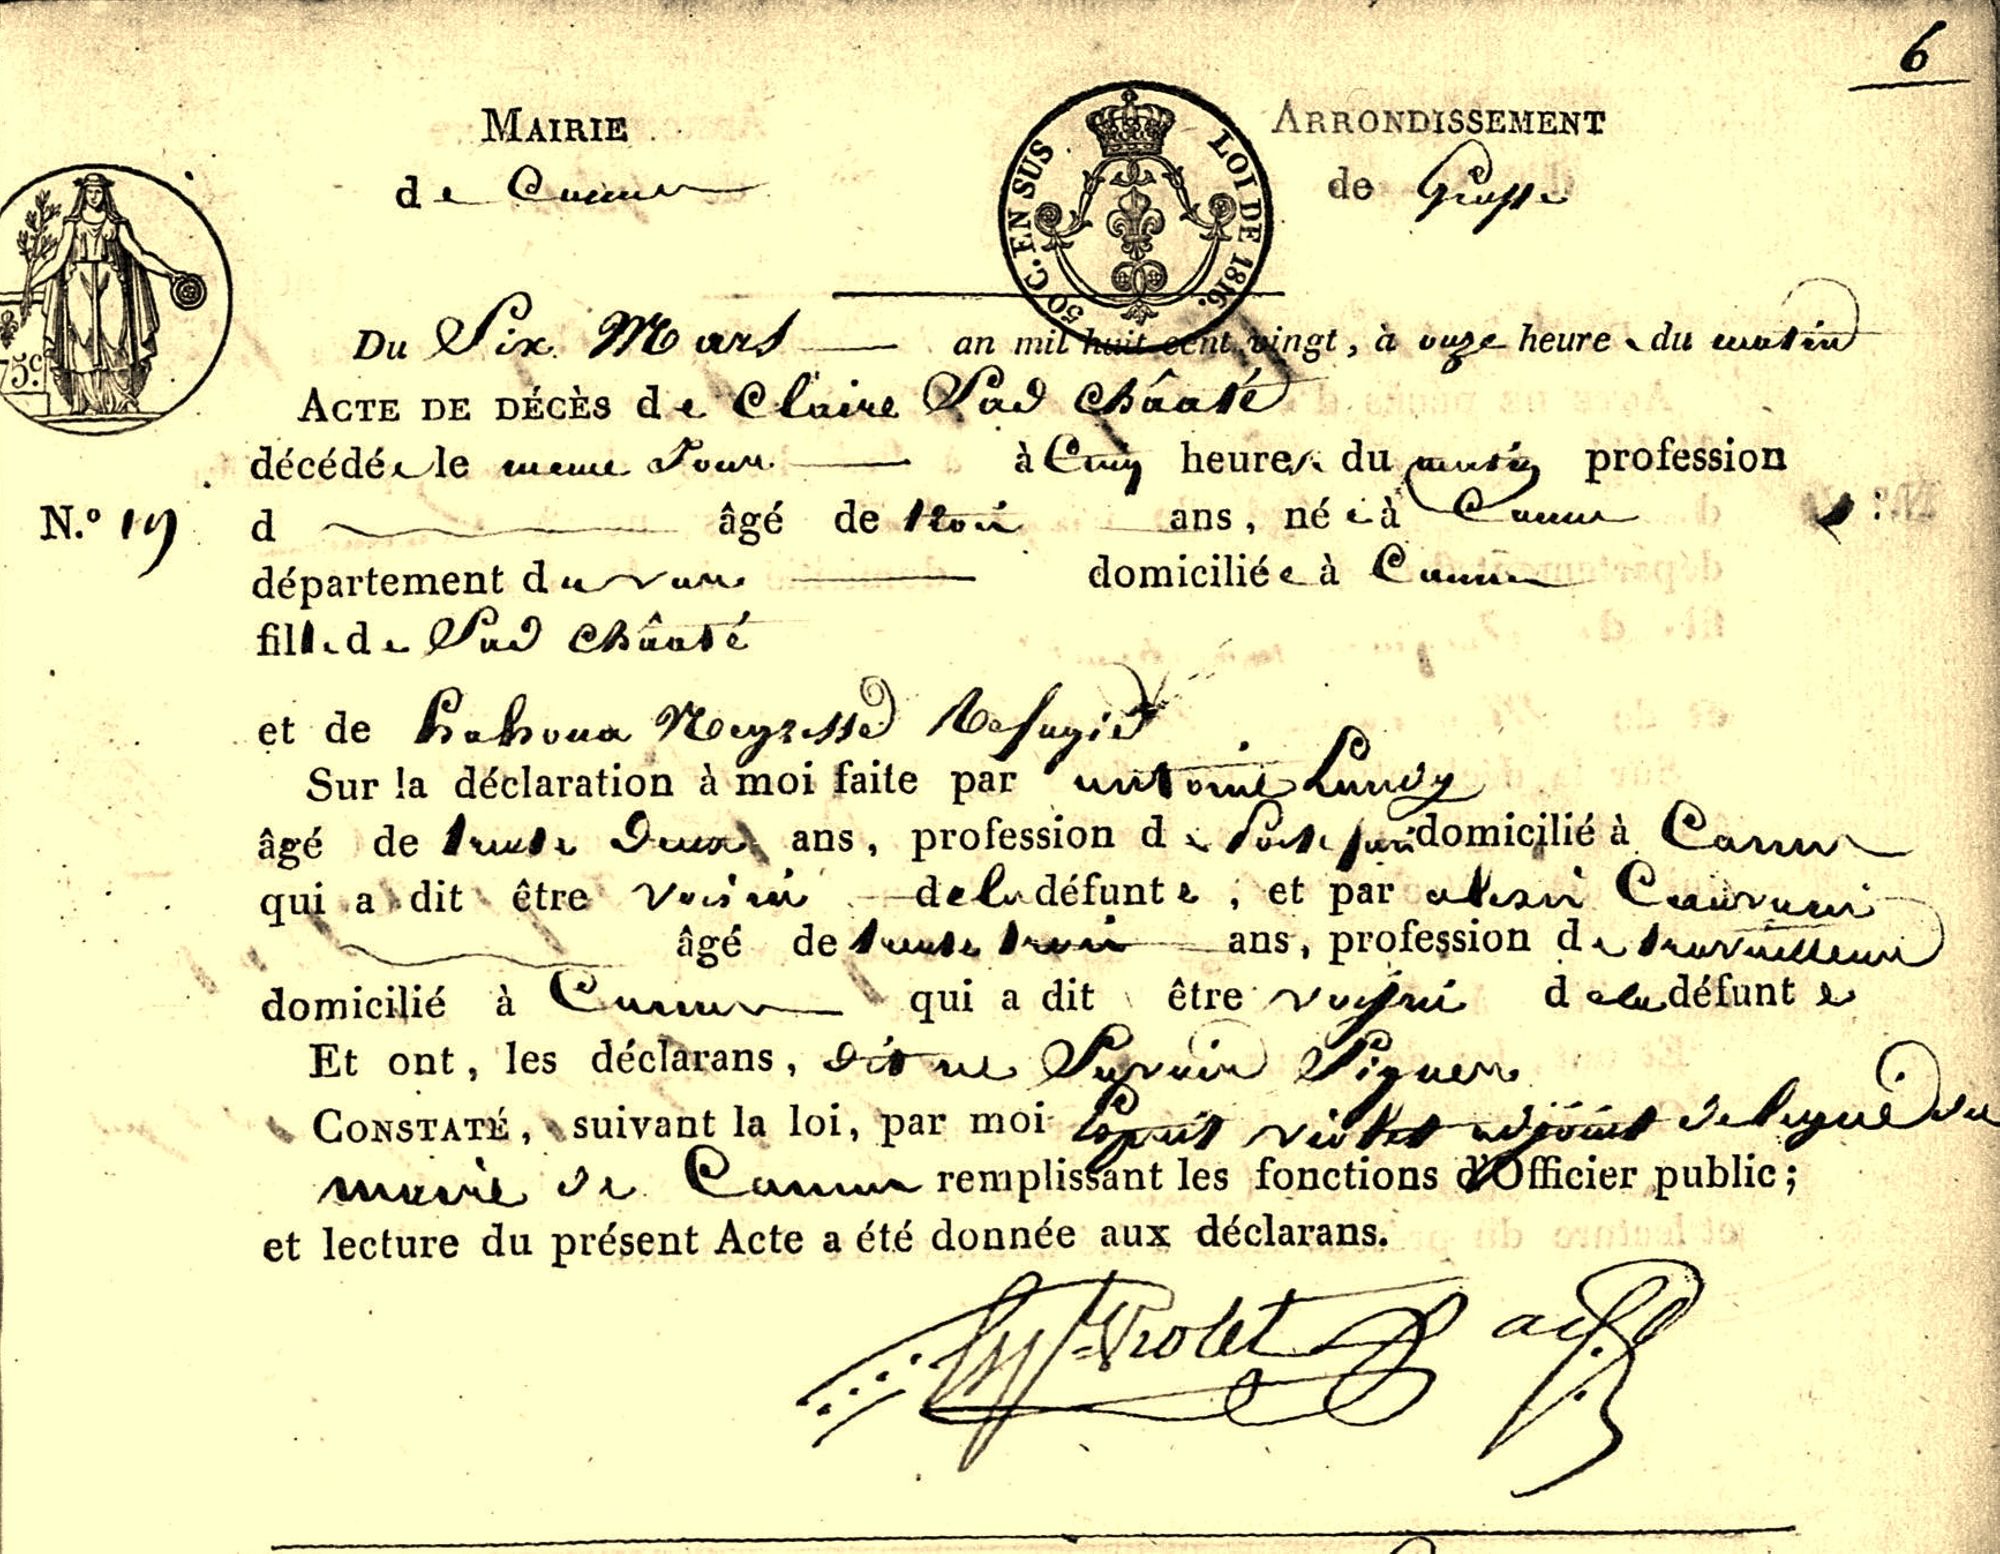 6
MAIRIE
de Cannes
ARRONDISSEMENT
de Grasse
50 C. EN SUS LOI DE 1816.
75 c.
Du Six Mars an mil huit cent vingt, à onze heures du matin
ACTE DE DÉCÈS de Claire Sad Châaté
décédée le meme Jour à Cinq heures du matin profession
N.º 19 d âgé de trois ans, née à Cannes
département du var domiciliée à Cannes
fille de Sad Châaté
et de hahoua Negresse Refugié
Sur la déclaration à moi faite par antoine
âgé de trente Deux ans, profession de Portefaix domicilié à Cannes
qui a dit être voisin de la défunte, et par
âgé de trente trois ans, profession de travailleur
domicilié à Cannes qui a dit être voisin de la défunte
Et ont, les déclarans, dit ne Savoir Signer
CONSTATÉ, suivant la loi, par moi Esprit violet adjoint delegué du
maire de Cannes remplissant les fonctions d'Officier public;
et lecture du présent Acte a été donnée aux déclarans.
Violet adj